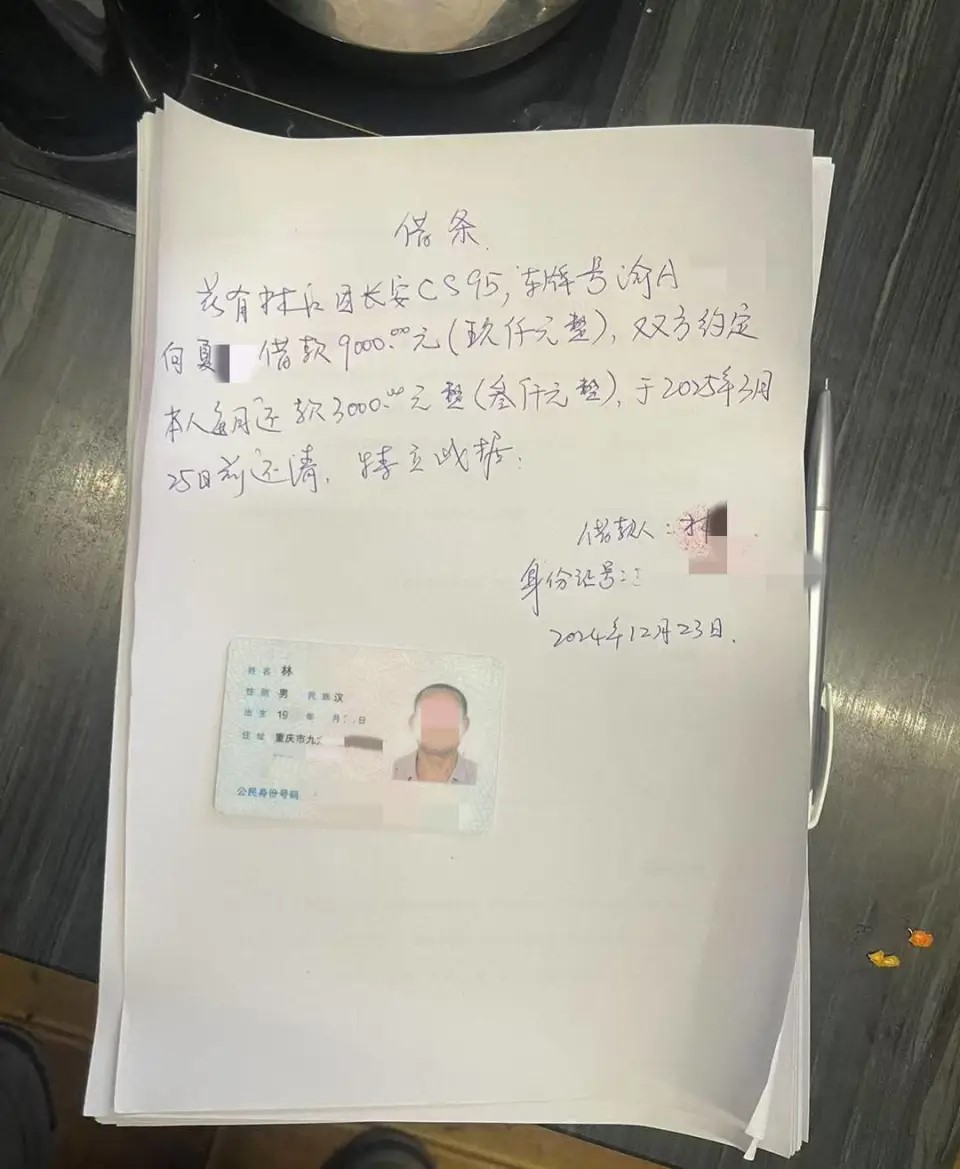 借条
兹有林后因长安CS95,车牌号渝A
向夏 借款9000.00元(玖仟元整),双方约定
本人每月还款3000.00元整(叁仟元整),于2025年3月
25日前还清,特立此据.
借款人:林
身份证号:
2024年12月23日.
姓名 林
性别 男 民族 汉
出生 19 年 月 日
住址 重庆市九
公民身份号码